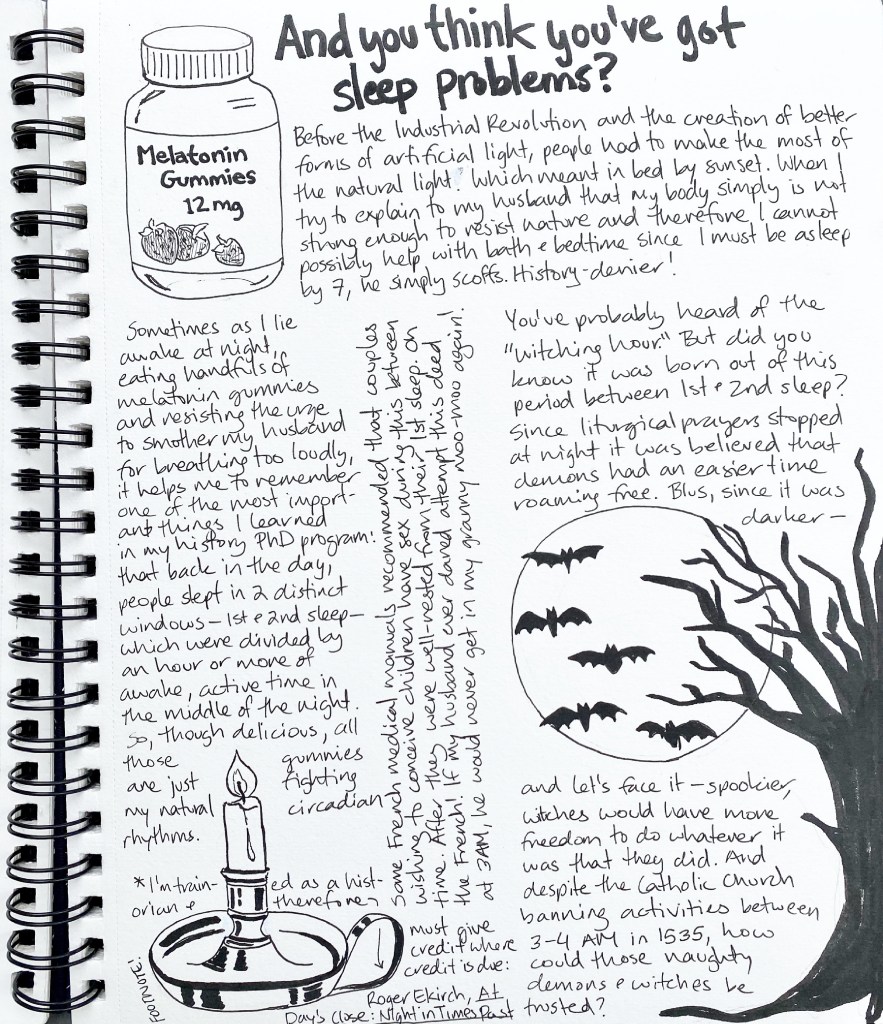 And you think you've got
sleep problems?
Melatonin
Gummies
12 mg
Before the Industrial Revolution and the creation of better
forms of artificial light, people had to make the most of
the natural light. Which meant in bed by sunset. When I
try to explain to my husband that my body simply is not
strong enough to resist nature and therefore I cannot
possibly help with bath & bedtime since I must be asleep
by 7, he simply scoffs. History-denier!
Sometimes as I lie
awake at night,
eating handfuls of
melatonin gummies
and resisting the urge
to smother my husband
for breathing too loudly,
it helps me to remember
one of the most import-
ant things I learned
in my history PhD program:
that back in the day,
people slept in 2 distinct
windows - 1st & 2nd sleep -
which were divided by
an hour or more of
awake, active time in
the middle of the night.
So, though delicious, all
those gummies
are just fighting
my natural circadian
rhythms.
Some French medical manuals recommended that couples
wishing to conceive children have sex during this between
time. After they were well-rested from their 1st sleep. Oh
the French! If my husband ever dared attempt this deed
at 3AM, he would never get in my granny moo-moo again!
You've probably heard of the
"witching hour." But did you
know it was born out of this
period between 1st & 2nd sleep?
Since liturgical prayers stopped
at night it was believed that
demons had an easier time
roaming free. Plus, since it was
darker -
and let's face it - spookier,
witches would have more
freedom to do whatever it
was that they did. And
despite the Catholic Church
banning activities between
3-4 AM in 1535, how
could those naughty
demons & witches be
trusted?
FOOTNOTE:
*I'm train-ed as a hist-
orian & therefore
must give
credit where
credit is due:
Roger Ekirch, At
Day's Close: Night in Times Past